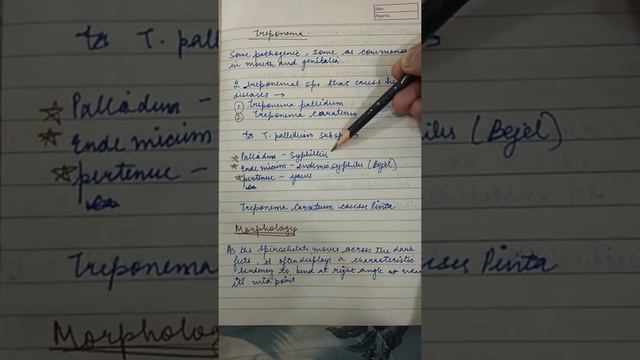 Date:
Page No.
Treponema
Some pathogenic, some as commensa
in mouth and genitalia
2 treponemal sps that causes
diseases →
① Treponema pallidum
② Treponema carateum
T. pallidum subsp
Palladum - Syphilis
Endemicum - endemic syphilis (Bejel)
pertenue - yaws
Treponema carateum causes Pinta
Morphology
As the spirochete moves across the dark
field, it often displays a characteristic
tendency to bend at right angle at near
its mid point